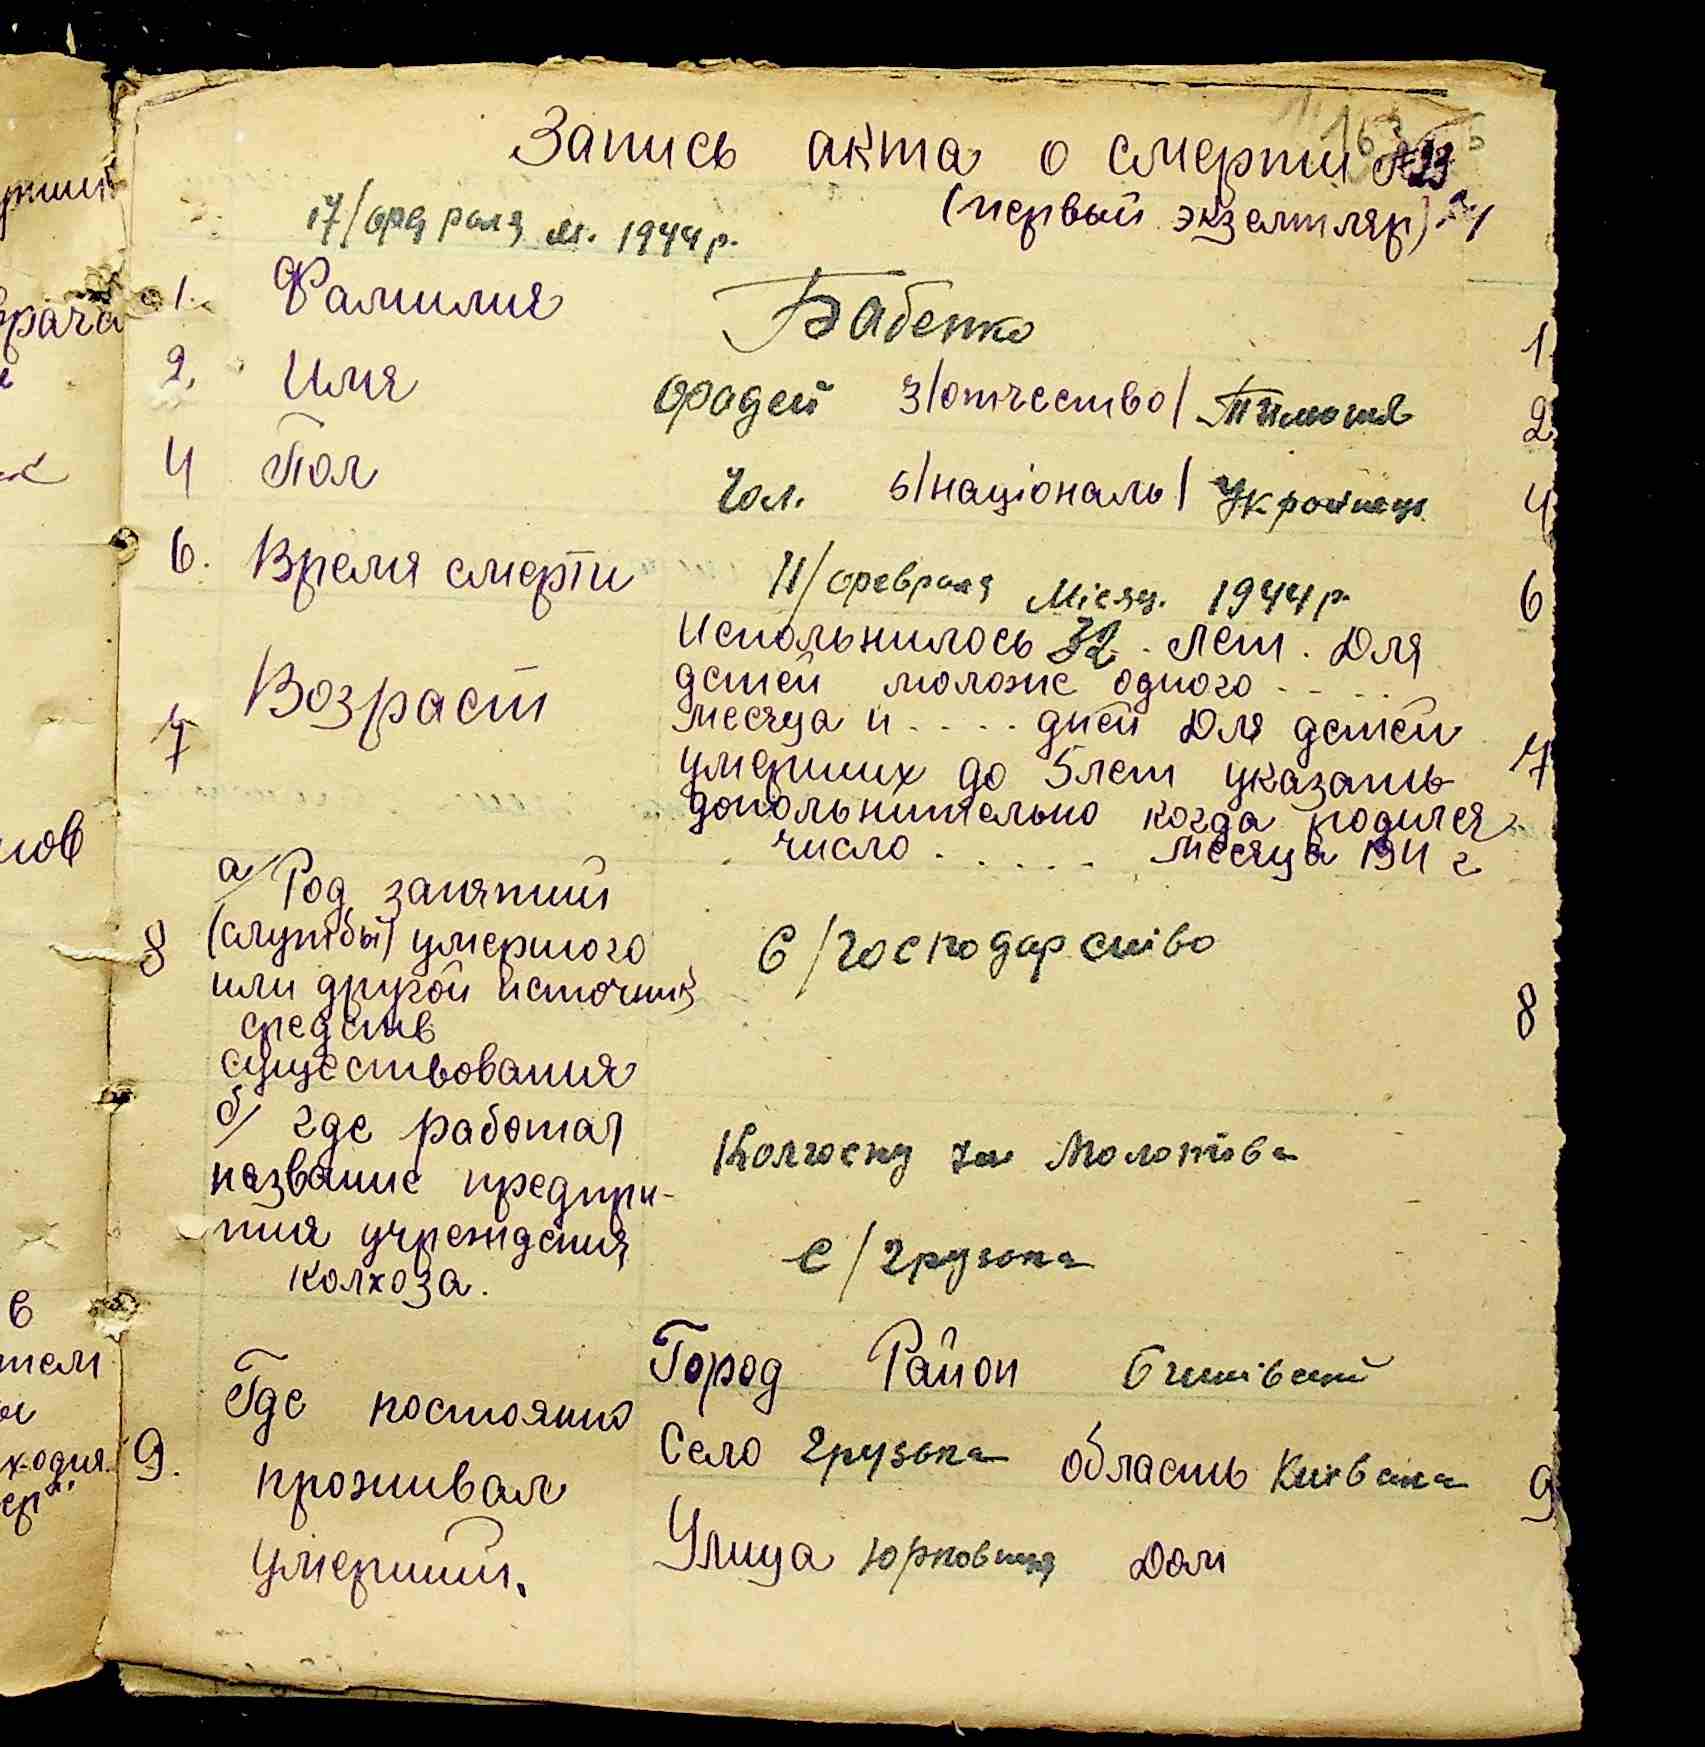 Запись акта о смерти №
(первый экземпляр)
17/ февраля м. 1944 р.
1. Фамилия Бабенко 1
2. Имя Фадей 3/отчество/ 2
4 Пол Чол. 5/національ/ Українець 4
6. Время смерти 11/февраля місяц. 1944 р. 6
7 Возраст Испольнилось 32 лет. Для
детей моложе одного . . . .
месяца и . . . . дней Для детей 7
умерших до 5 лет указать
допольнительно когда родился
число . . . . . месяца 194 г
8 а/ Род занятий
(службы) умершого С/господарство
или другой источник
средств 8
существования
б/ где работал Колгоспу Молотова
название предпри-
тия учреждения с/Грузька
колхоза.
9. Где постоянно Город Район
проживал Село Грузька область Київська 9
умерший. Улица Юрковиця Дом
врача
ходия.